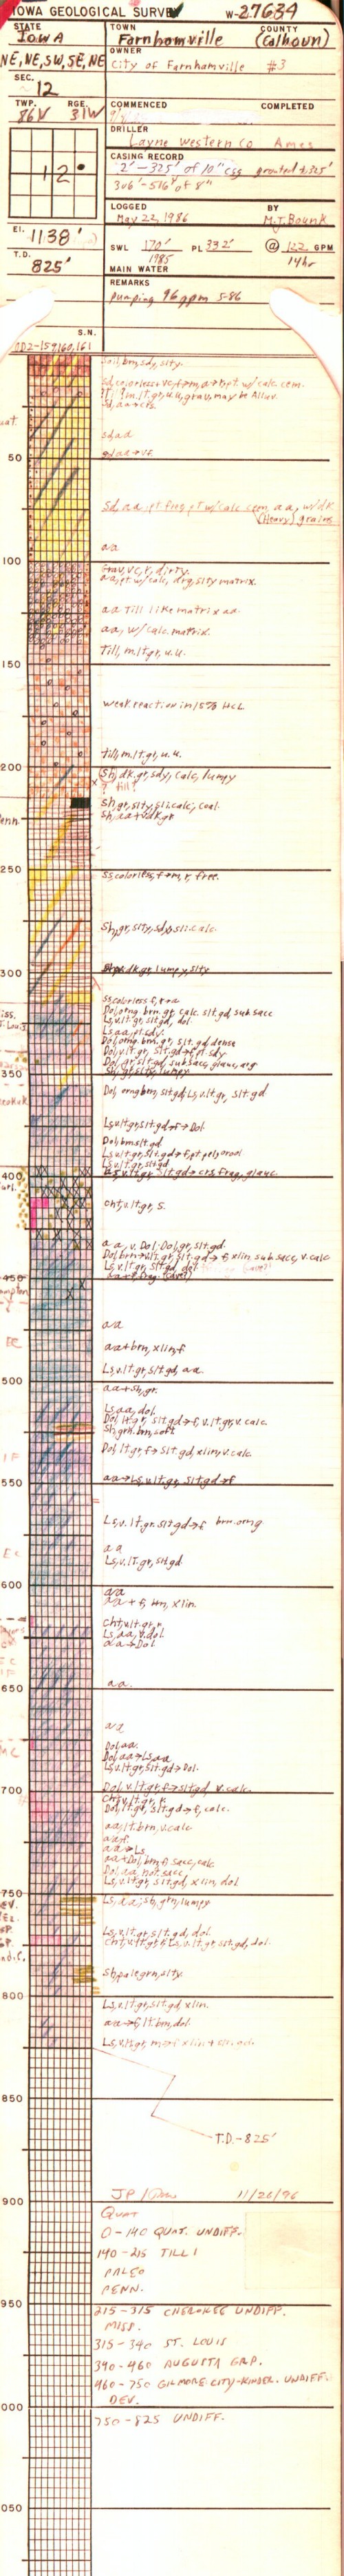 IOWA GEOLOGICAL SURVEY W-27634
STATE TOWN COUNTY
Iowa Farnhamville (Calhoun)
OWNER
NE, NE, SW, SE, NE City of Farnhamville #3
SEC.
12
TWP. RGE. COMMENCED COMPLETED
86N 31W
DRILLER
Layne Western Co Ames
CASING RECORD
2'-325' of 10" csg grouted to 325'
306'-516' of 8"
12
LOGGED BY
May 22, 1986 M.J. Bounk
El. 1138'
SWL 170' PL 332' @ 122 GPM
1985 14hr
T.D. 825'
MAIN WATER
REMARKS
Pumping 96 gpm 5-86
S.N.
Soil, brn, sdy, slty.
Sd, aa→crs.
sd, aa
50
sd, aa→vf.
Sd, aa, pt freq pt w/calc cem, aa, w/dk
(Heavy) grains
aa
100
Grav, vc, r, dirty.
aa, pt w/calc, drg, slty matrix.
aa Till like matrix aa.
aa, w/calc. matrix.
Till, m.lt.gr, u.u.
150
Weak reaction in 15% HCL
till, m.lt.gr, u.u.
200
Sh, dk.gr, sdy, calc, lumpy
? till?
Sh, gr, slty, sli.calc, coal.
Sh, aa+vdkgr
250
ss, colorless, f→m, r, free.
Sh, gr, slty, sdy, sli.calc.
300
Sh, v.dk.gr, lumpy, slty
ss colorless f, r→a
Dol, orng. brn. gr, calc. slt.gd sub sacc
Ls, v.lt.gr, slt.gd, dol
Ls, aa, pt. sdy.
Dol, orng. brn, gr, slt.gd dense
Dol, v.lt.gr, slt.gd→f, pt. sdy
Sh, gr, slty, lumpy
350
Dol, orng brn, slt.gd, Ls, v.lt.gr, slt.gd
Ls, v.lt.gr, slt.gd→f→Dol.
Dol, brn, slt.gd
Ls, v.lt.gr, slt.gd→f, pt pelg, ool
Ls, v.lt.gr, slt.gd
400
Ls, v.lt.gr, slt.gd→crs, frag, glauc
cht, v.lt.gr, s.
aa, v. Dol; Dol, gr, slt.gd.
Dol, brn→v.lt.gr, slt.gd→f, xlin, sub sacc, v.calc
Ls, v.lt.gr, slt.gd, dol
450
aa+f, frag. (cave?)
aa
aa+brn, xlin, f
Ls, v.lt.gr, slt.gd, aa.
500
aa+sh, gr.
Ls, aa, dol.
Dol, lt.gr, slt.gd→f, v.lt.gr, v.calc.
Sh, grn, brn, soft
Dol, lt.gr, f→slt.gd, xlin, v.calc.
550
aa→Ls, v.lt.gr, slt.gd→f
Ls, v.lt.gr, slt.gd→f brn. orng
aa
Ls, v.lt.gr, slt.gd
600
aa
aa+f, brn, xlin.
cht, v.lt.gr, r
Ls, aa, v.dol
aa→Dol.
650
aa.
aa
Dol, aa.
Dol, aa→Ls, aa
Ls, v.lt.gr, slt.gd→Dol.
700
Dol, v.lt.gr, f→slt.gd, v.calc.
cht, v.lt.gr, r.
Dol, lt.gr, slt.gd→f, calc.
aa, lt.brn, v.calc
aa+f.
aa→Ls
aa+Dol, brn, f, sacc, calc
Dol, aa, not sacc,
Ls, v.lt.gr, slt.gd, xlin, dol
750
Ls, aa; sh, grn, lumpy
Ls, v.lt.gr, slt.gd, dol.
Cht, v.lt.gr, r; Ls, v.lt.gr, slt.gd, dol.
Sh, pale grn, slty.
800
Ls, v.lt.gr, slt.gd, xlin.
aa→f, lt.brn, dol.
850
T.D.-825'
900
11/26/96
QUAT
0-140 QUAT. UNDIFF.
140-215 TILL 1
PALEO
PENN.
950
215-315 CHEROKEE UNDIFF.
MISS.
315-340 ST. LOUIS
340-460 AUGUSTA GRP.
460-750 GILMORE CITY-KINDER. UNDIFF.
DEV.
000
750-825 UNDIFF.
050